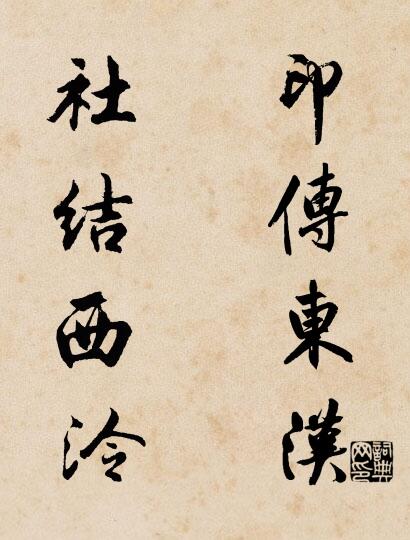 印傳東漢
社结西泠
詞典网印